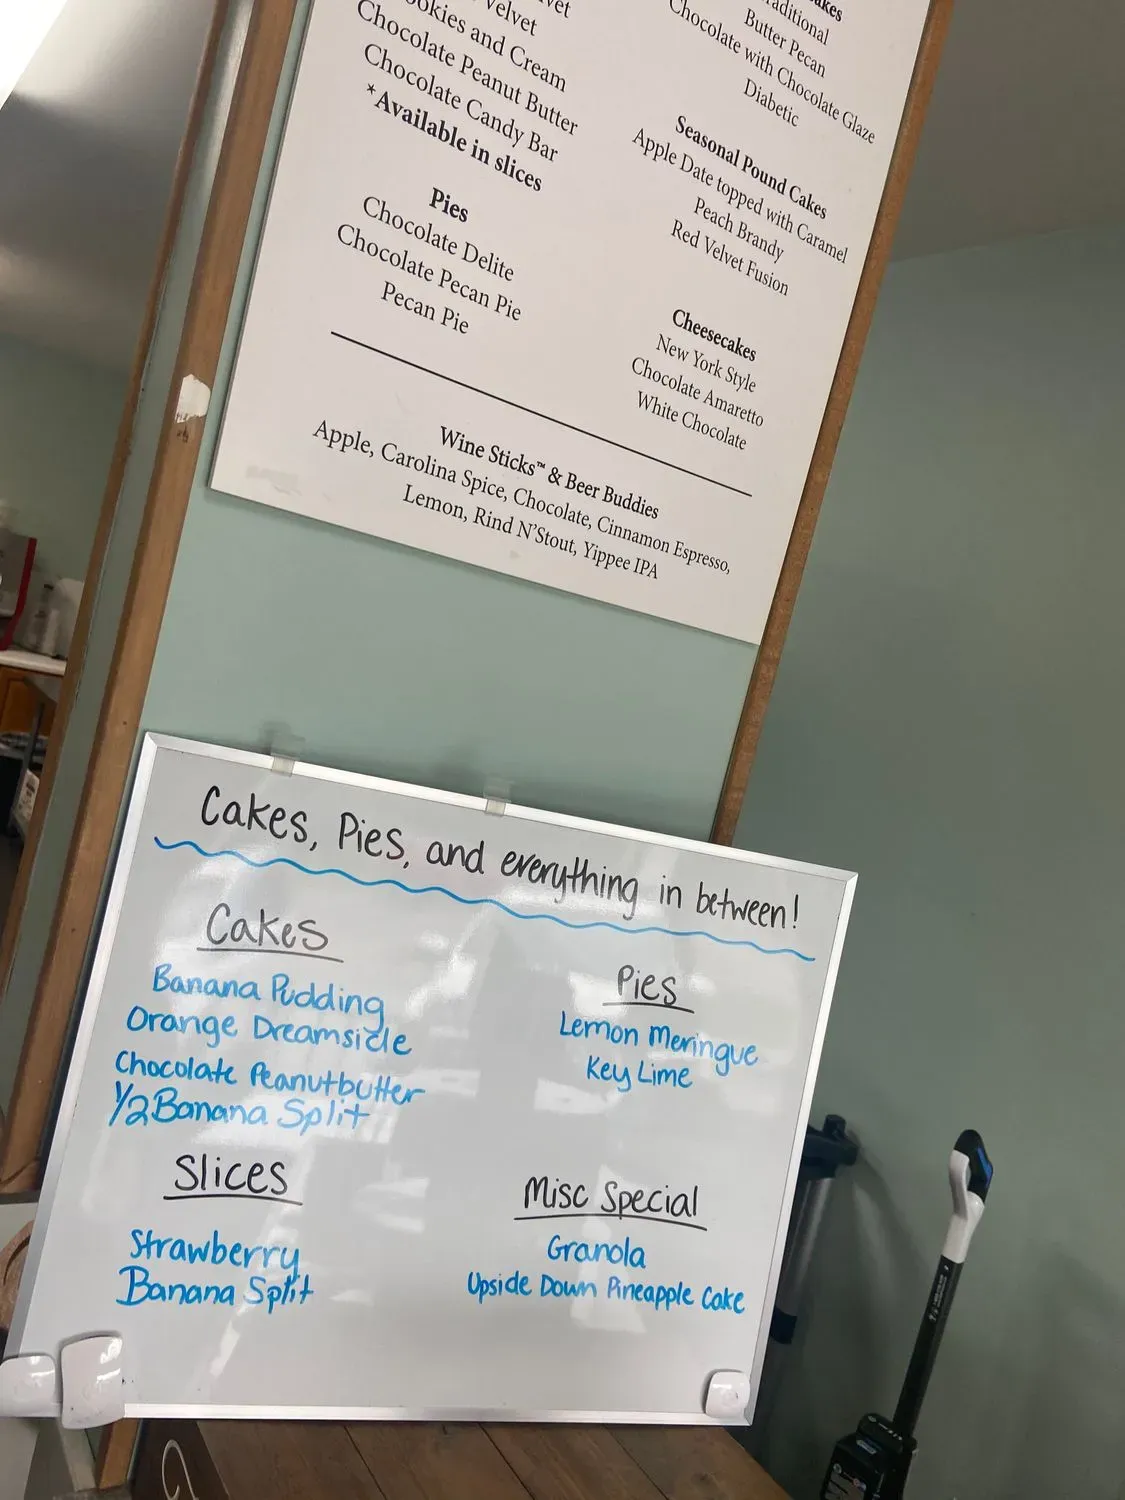 Velvet
Cookies and Cream
Chocolate Peanut Butter
Chocolate Candy Bar
*Available in slices
Pies
Chocolate Delite
Chocolate Pecan Pie
Pecan Pie
Traditional
Butter Pecan
Chocolate with Chocolate Glaze
Diabetic
Seasonal Pound Cakes
Apple Date topped with Caramel
Peach Brandy
Red Velvet Fusion
Cheesecakes
New York Style
Chocolate Amaretto
White Chocolate
Wine Sticks™ & Beer Buddies
Apple, Carolina Spice, Chocolate, Cinnamon Espresso,
Lemon, Rind N'Stout, Yippee IPA
Cakes, Pies, and everything in between!
Cakes
Banana Pudding
Orange Dreamsicle
Chocolate Peanutbutter
1/2 Banana Split
Slices
Strawberry
Banana Split
Pies
Lemon Meringue
Key Lime
Misc Special
Granola
Upside Down Pineapple Cake